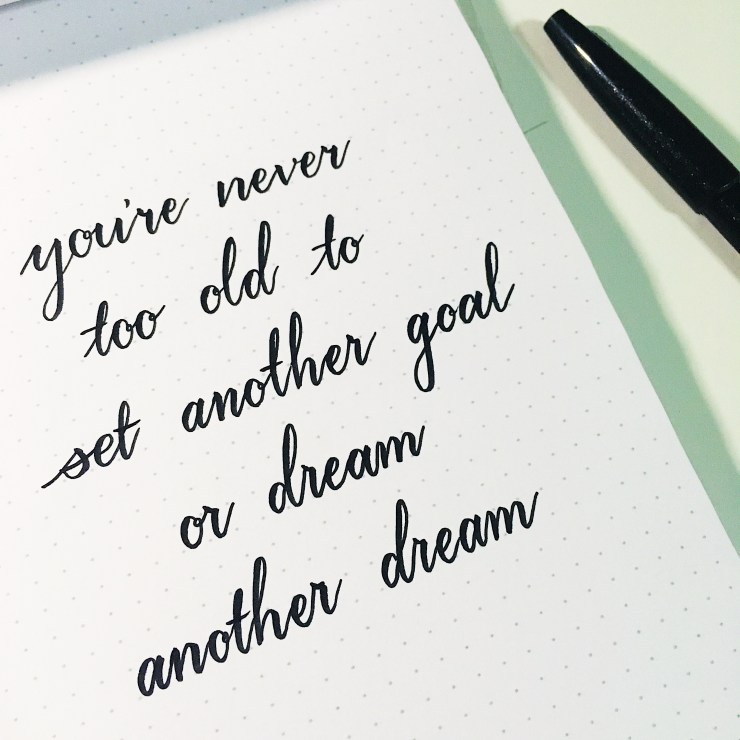 you're never
too old to
set another goal
or dream
another dream